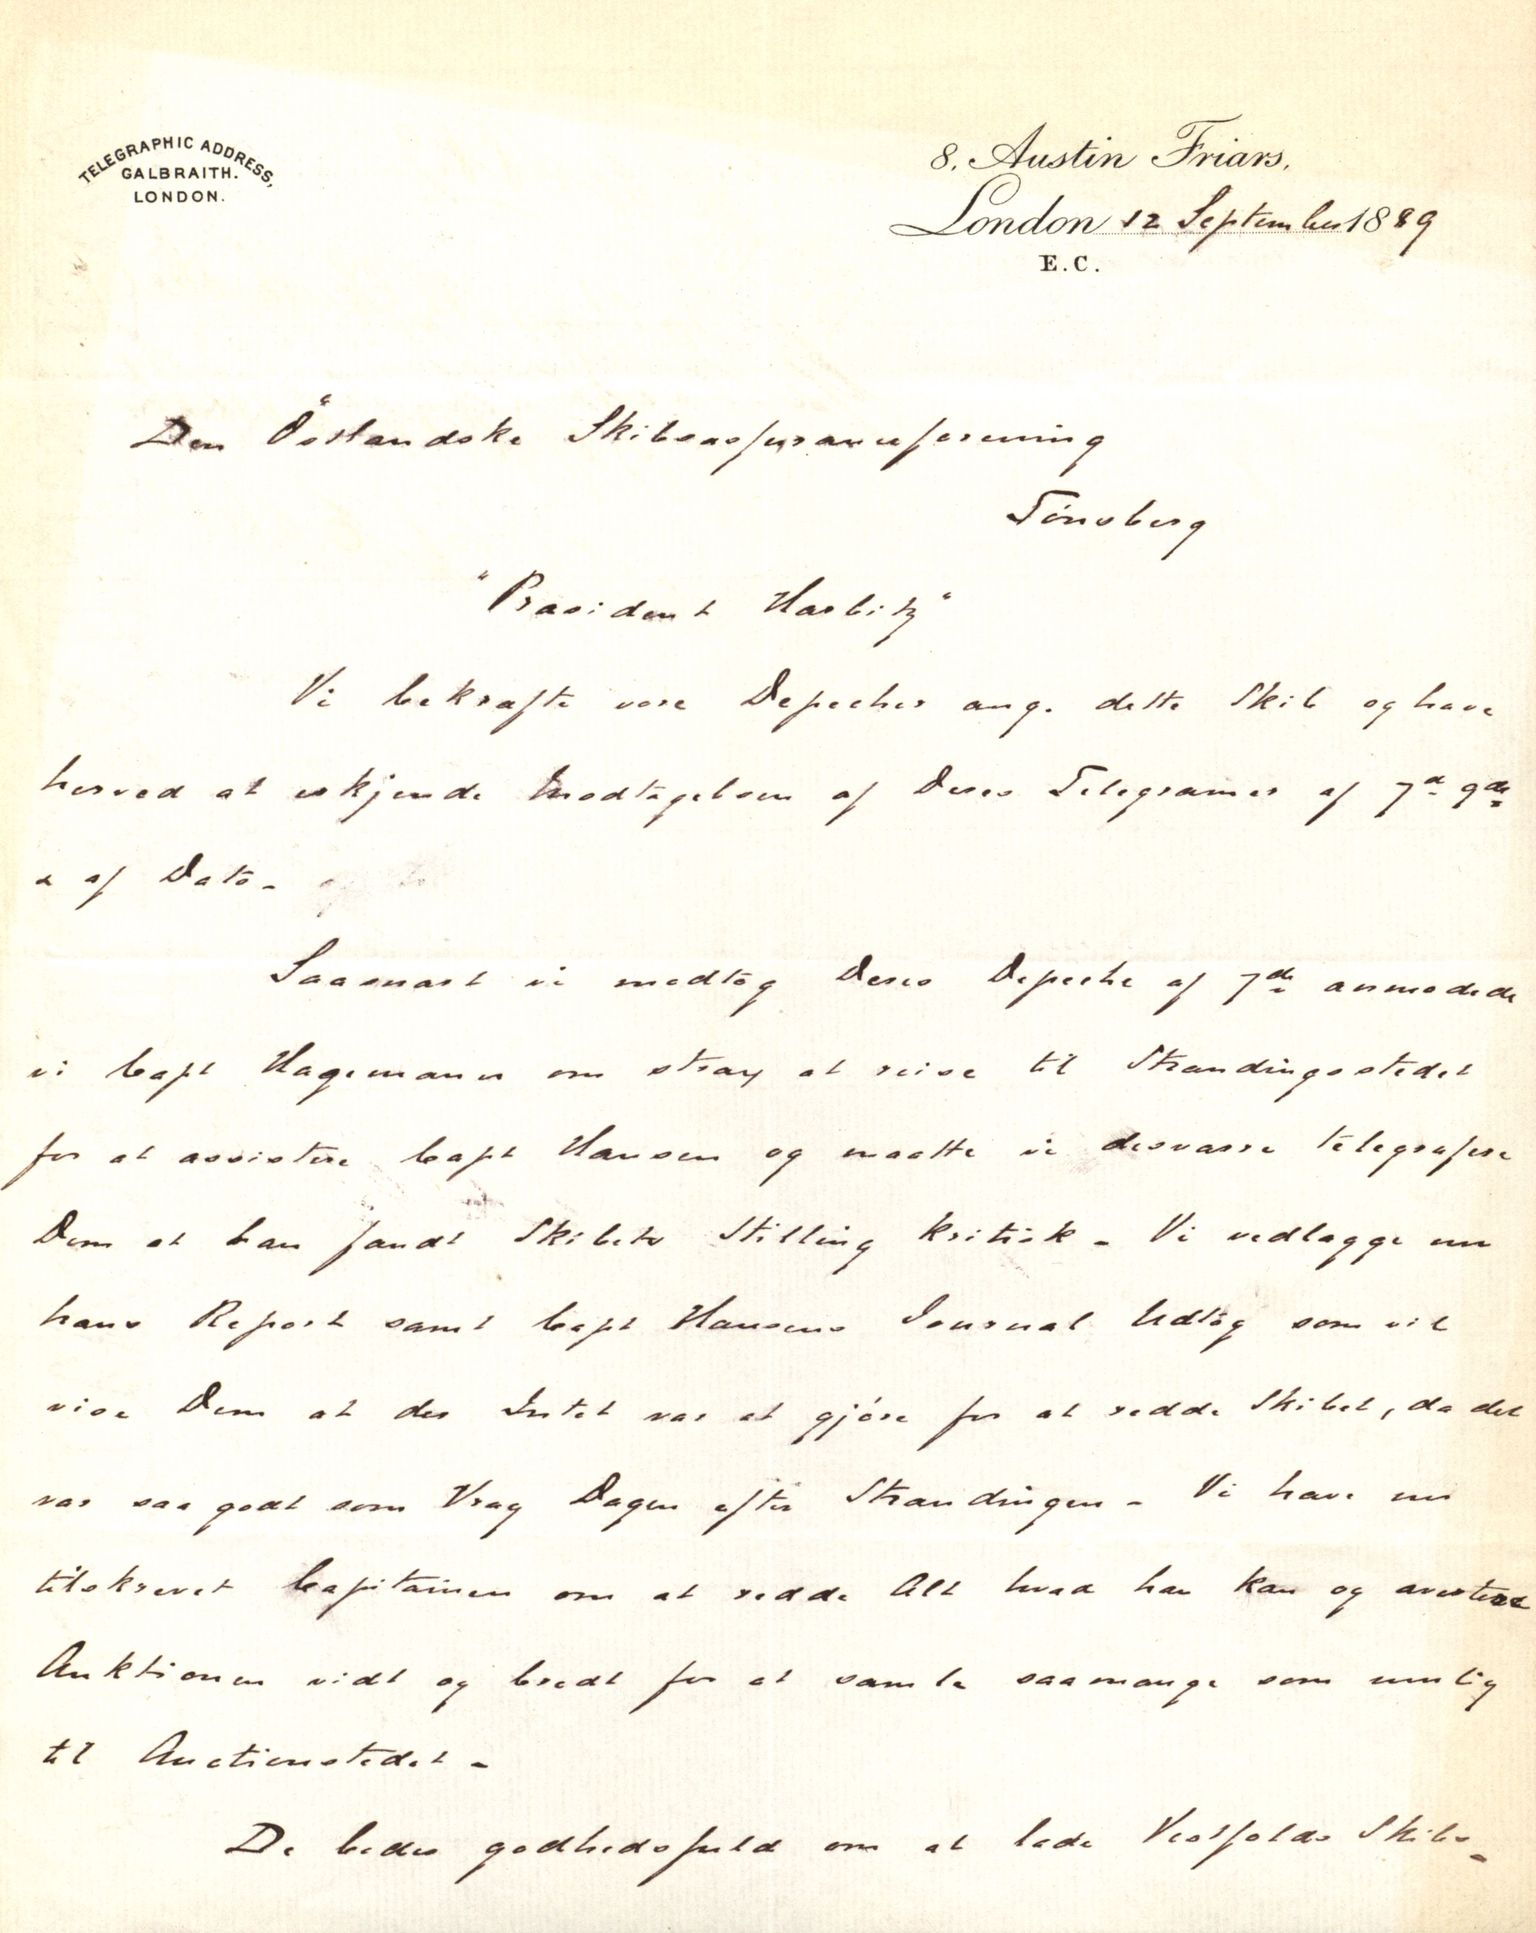 TELEGRAPHIC ADDRESS,
GALBRAITH.
LONDON.
8, Austin Friars,
London 12 September 1889
E.C.
Den Östlandske Skibsassuranceforening
Tönsberg
"Præsident Harbitz"
Vi bekræfte vore Depecher ang. dette Skib og have
herved at erkjende Modtagelsen af Deres Telegramer af 7d 9de
& af Dato -
Saasnart vi modtog Deres Depeche af 7de anmodede
vi Capt Hagemann om strax at reise til Strandingsstedet
for at assistere Capt Hansen og maatte vi desværre telegrafere
Dem at han fandt Skibets Stilling kritisk - Vi vedlægge nu
hans Report samt Capt Hansens Journal Udtog som vil
vise Dem at der Intet var at gjöre for at redde Skibet, da det
var saa godt som Vrag Dagen efter Strandingen - Vi have nu
tilskrevet Capitainen om at redde Alt hvad han kan og avertere
Auktionen vidt og bredt for at samle saamange som mulig
til Auctionstedet -
De bedes godhedsfuld om at lade Vestfolds Skibs-